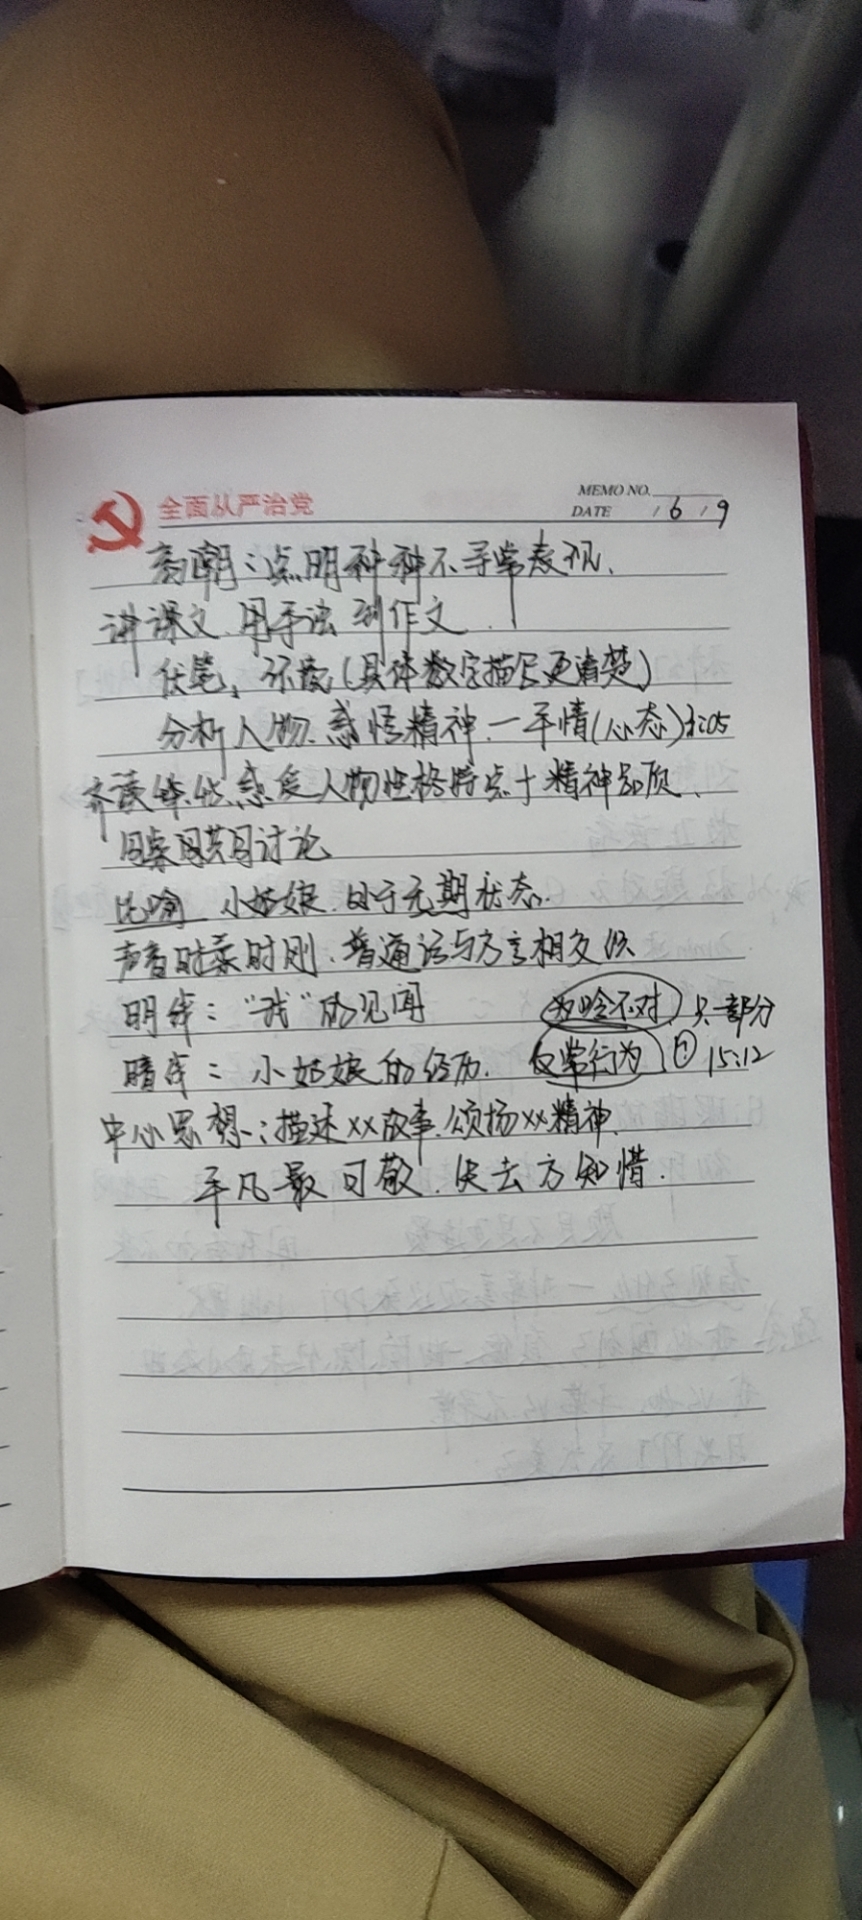 全面从严治党
MEMO NO.
DATE / 6 / 9
高潮：点明种种不寻常表现.
讲课文、用手法 到作文.
伏笔，(具体数字描写更清楚)
分析人物、感悟精神.一平情(心态)
齐读 感受人物性格特点+精神品质、
同桌讨论
比喻 小姑娘 日于无期状态.
声音时柔时刚、普通话与方言相交织
明线："我"的见闻 不对 只一部分
暗线：小姑娘的经历. 反常行为 15:12
中心思想：描述xx故事.颂扬xx精神.
平凡最可敬.失去方知惜.